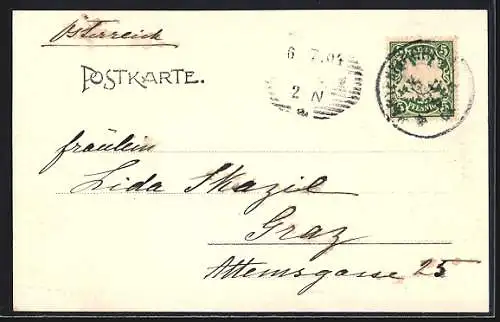 Österreich
POSTKARTE.
6 7.04
2 N
5
5
5
PFENNIG
fräulein
Lida Skazil
Graz
Attemsgasse 25